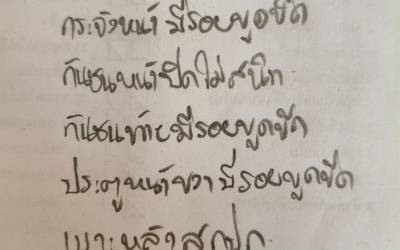 กระจังหน้ามีรอยขูดขีด
กันชนหน้าปิดไม่สนิท
กันชนท้ายมีรอยขูดขีด
ประตูหน้าขวามีรอยขูดขีด
เบาะหลังสกปรก